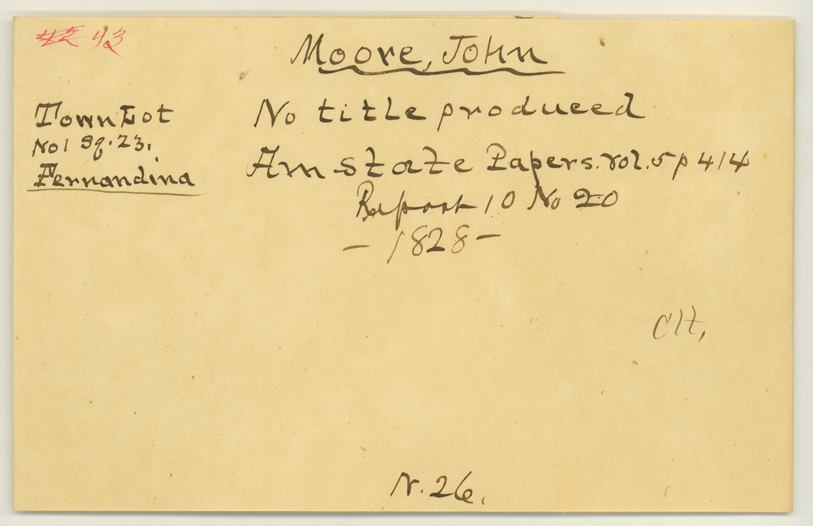 42 43
Moore, John
Town Lot
No 1 Sq. 23.
Fernandina
No title produced
Am state Papers. Vol. 5 p 414
Report 10 No 20
- 1828 -
Clt.
N. 26.